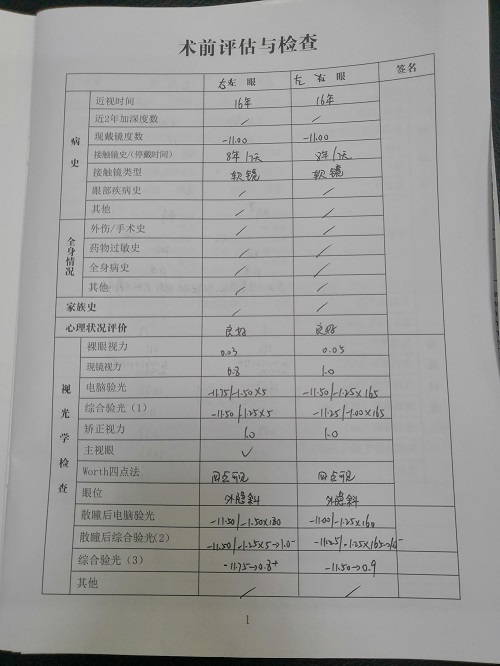 术前评估与检查
右 眼 左 眼 签名
病史
近视时间 16年 16年
近2年加深度数 / /
现戴镜度数 -11.00 -11.00
接触镜史/(停戴时间) 8年/7天 8年/7天
接触镜类型 软镜 软镜
眼部疾病史 / /
其他 / /
全身情况
外伤/手术史 / /
药物过敏史 / /
全身病史 / /
其他 / /
家族史 / /
心理状况评价 良好 良好
视光学检查
裸眼视力 0.03 0.05
现镜视力 0.8 1.0
电脑验光 -11.75/-1.50×5 -11.50/-1.25×165
综合验光(1) -11.50/-1.25×5 -11.25/-1.00×165
矫正视力 1.0 1.0
主视眼 ✓
Worth四点法 四点可见 四点可见
眼位 外隐斜 外隐斜
散瞳后电脑验光 -11.50/-1.50×180 -11.00/-1.25×160
散瞳后综合验光(2) -11.50/-1.25×5→1.0⁻ -11.25/-1.25×165→
综合验光(3) -11.75→0.8⁺ -11.50→0.9
其他 / /
1